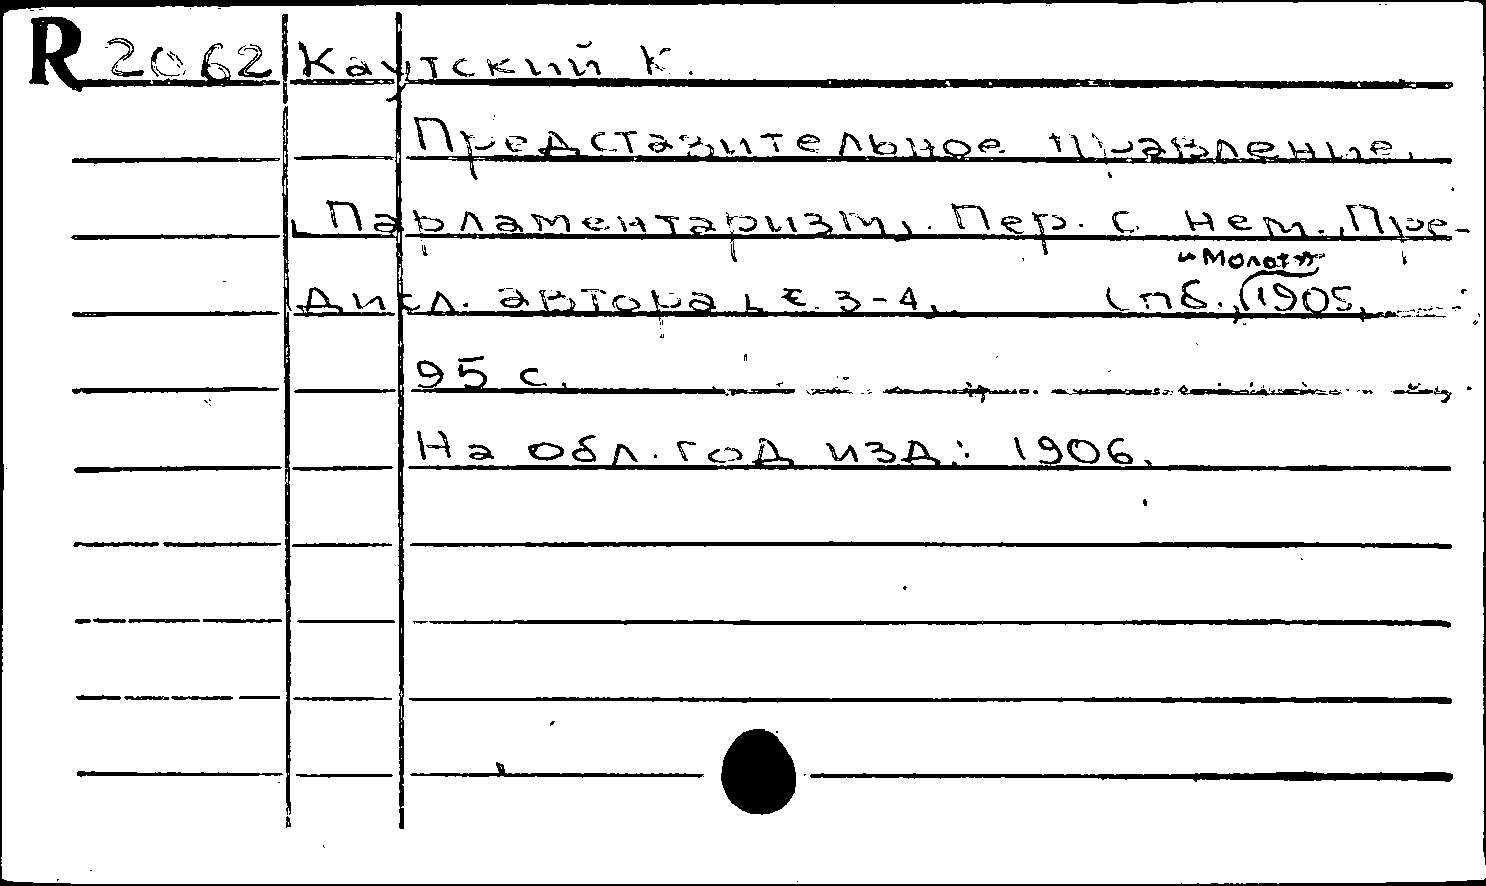 R 2062 Каутский К.
Представительное правление.
Парламентаризм. Пер. с нем., Пре-
дисл. автора, с. 3-4. Спб., "Молот", 1905,
95 с.
На обл. год изд: 1906.